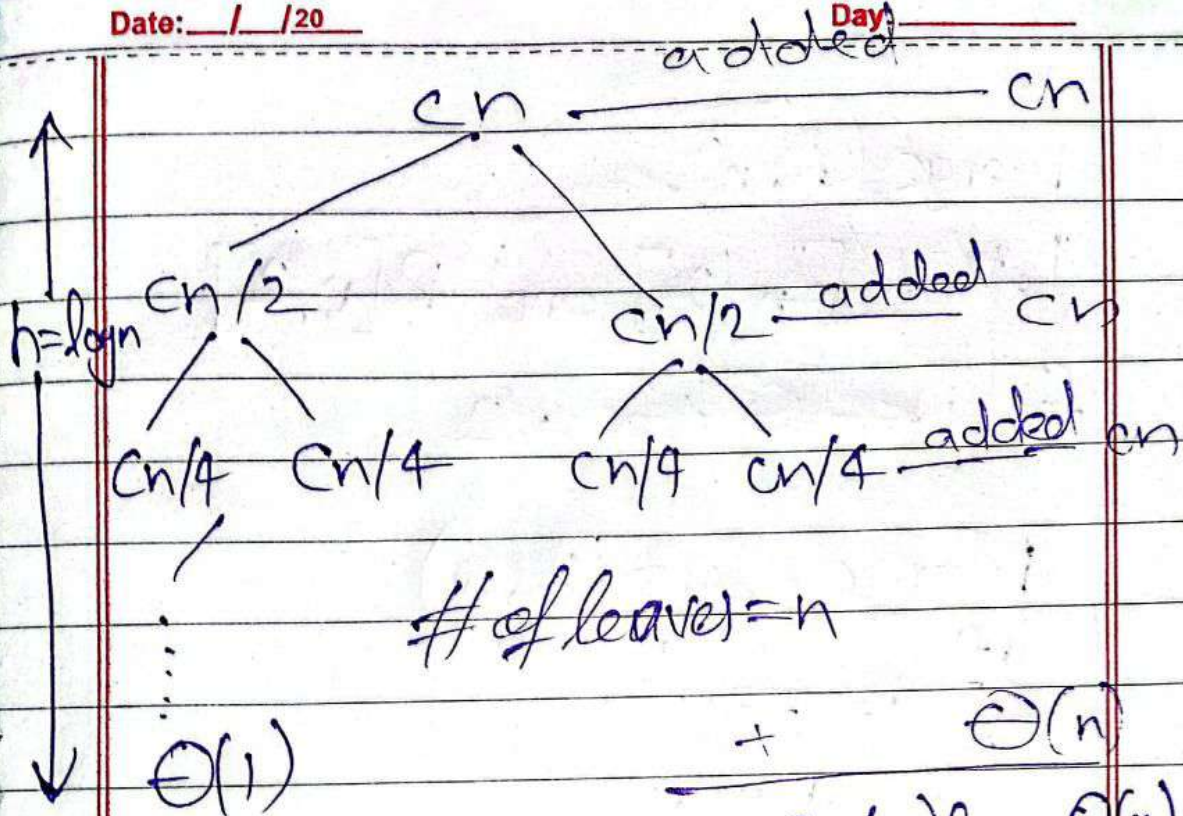 Date:__/__/20__ Day:
added
cn cn
cn/2 cn/2 added cn
h=logn
cn/4 cn/4 cn/4 cn/4 added cn
# of leaves=n
+ Θ(n)
Θ(1)